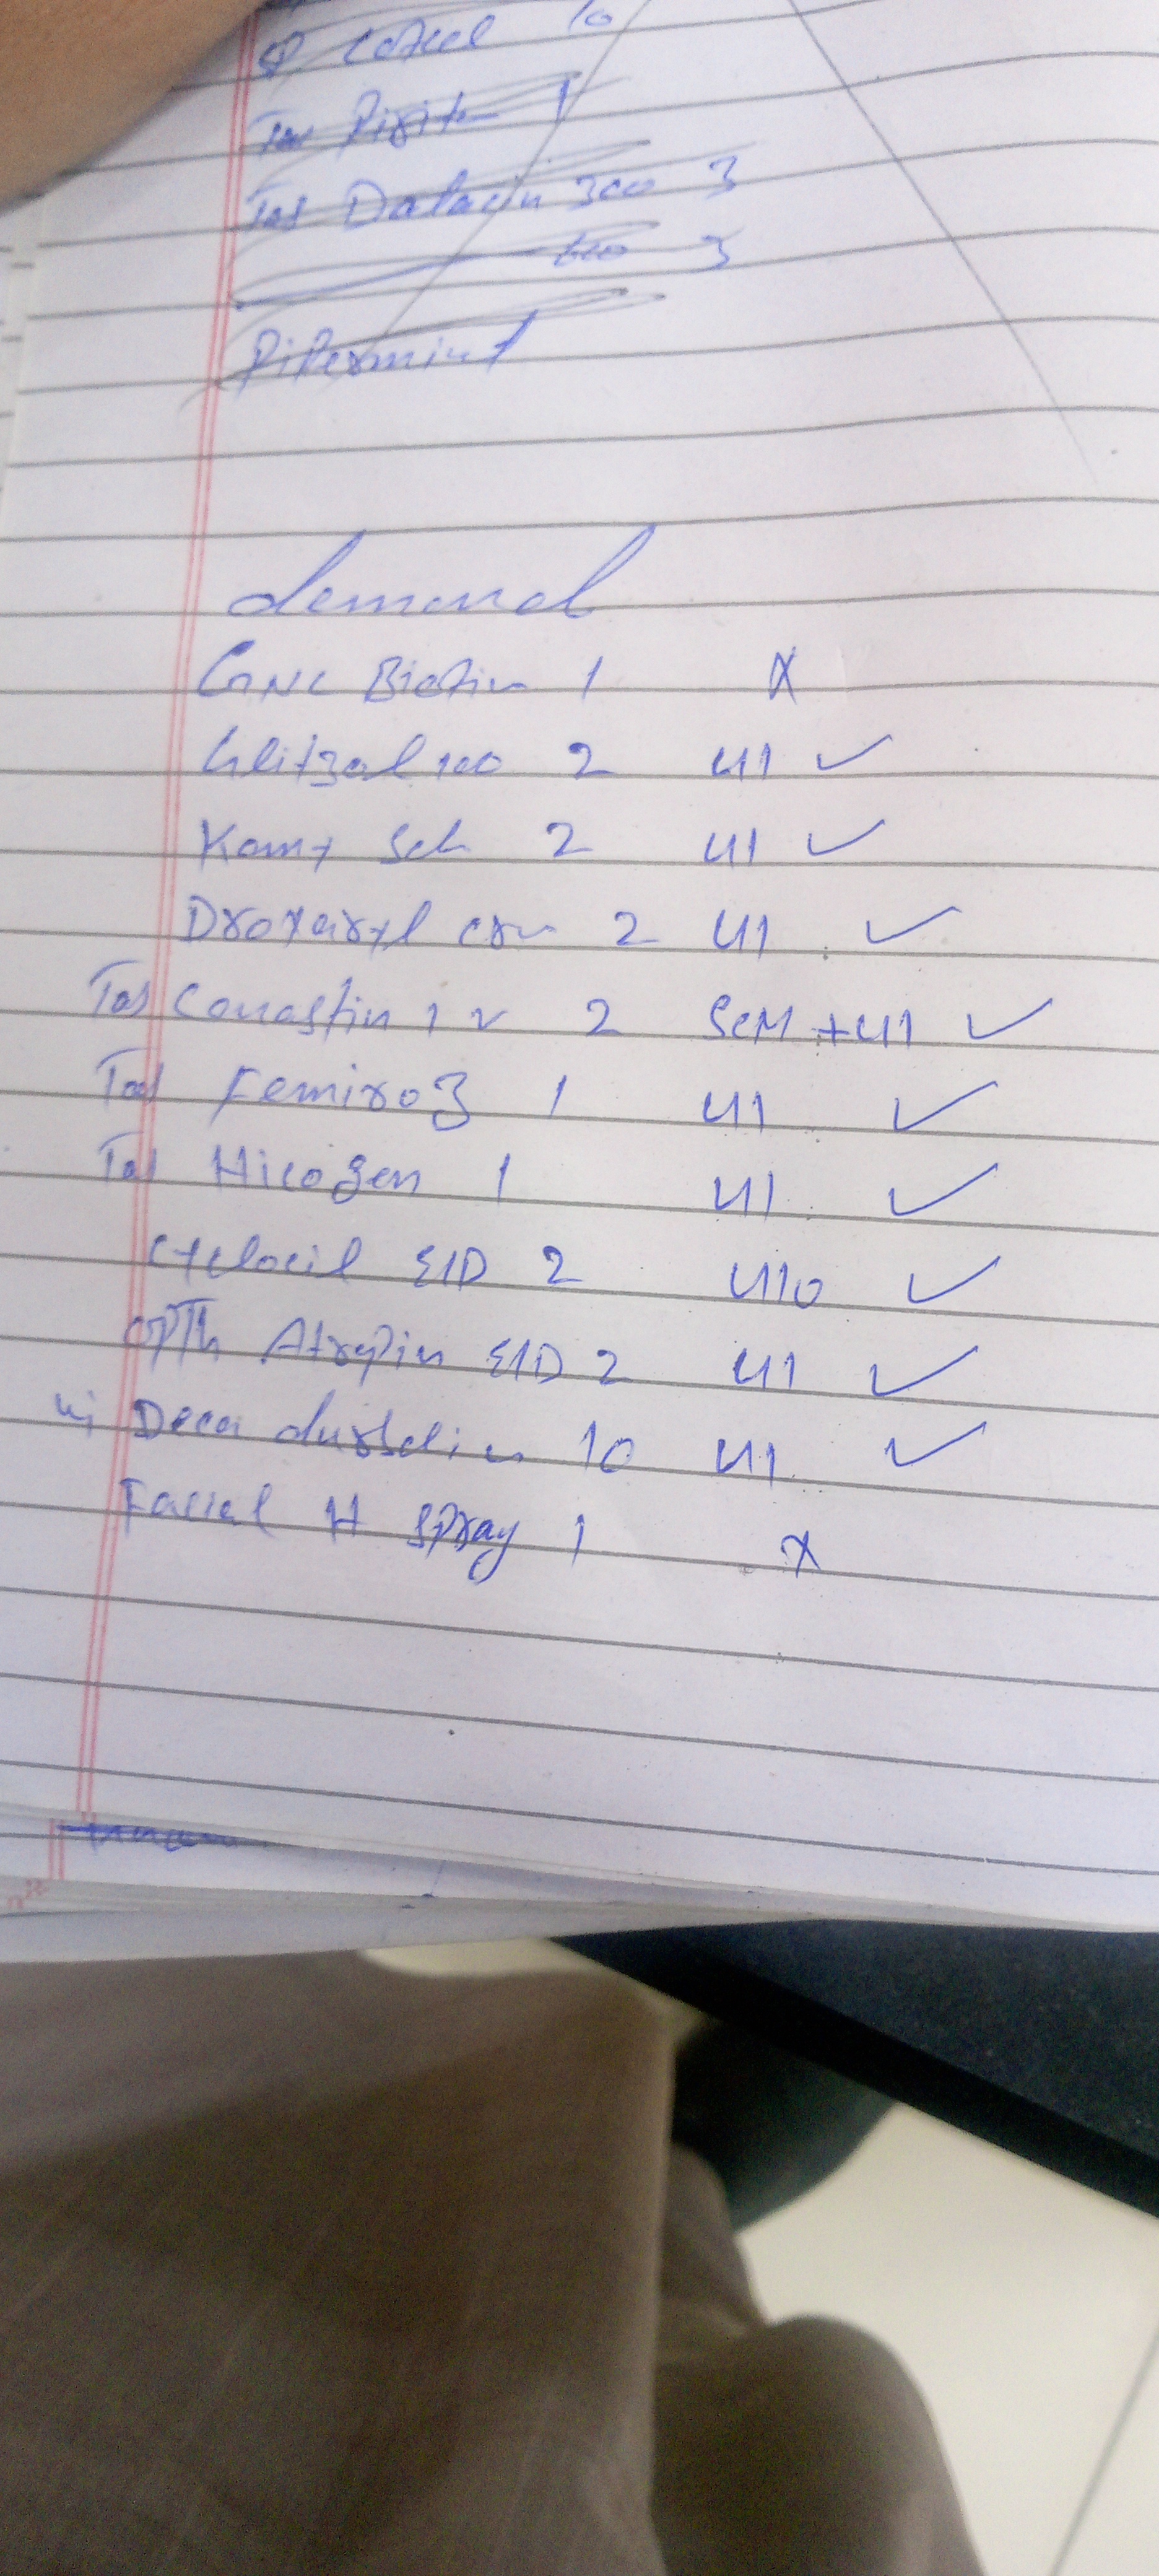 10
Tab 1
Tab Dalacin 300 3
600 3
Pipermint
demand
GNC Biotin 1 X
Glitzal 100 2 U1 ✓
Kamy Sch 2 U1 ✓
Droxaryl crm 2 U1 ✓
Tab Conastin 1 v 2 ScM + U1 ✓
Tab Femiroz 1 U1 ✓
Tab Hicogen 1 U1 ✓
Cyclocil E/D 2 U10 ✓
OPTh Atropin E/D 2 U1 ✓
inj Deca durbolin 10 U1 ✓
Facial H spray 1 X